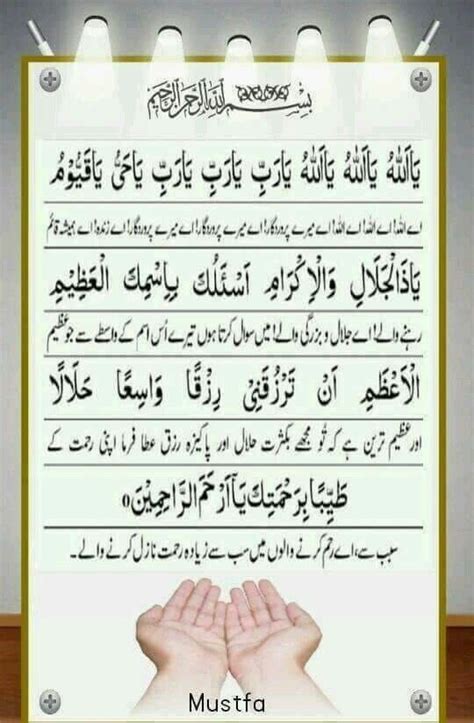 بسم الله الرحمن الرحيم
يَااَللّٰهُ يَااَللّٰهُ يَااَللّٰهُ يَارَبِّ يَارَبِّ يَارَبِّ يَاحَىُّ يَاقَيُّوْمُ
اے اللہ! اے اللہ! اے اللہ! اے میرے پروردگار! اے میرے پروردگار! اے میرے پروردگار! اے زندہ! اے ہمیشہ قائم
يَاذَالْجَلَالِ وَالْاِكْرَامِ اَسْئَلُكَ بِاِسْمِكَ الْعَظِيْمِ
رہنے والے! اے جلال و بزرگی والے! میں سوال کرتا ہوں تیرے اُس اسم کے واسطے سے جو عظیم
الْاَعْظَمِ اَنْ تَرْزُقَنِىْ رِزْقًا وَاسِعًا حَلَالًا
اور عظیم ترین ہے کہ تُو مجھے بکثرت حلال اور پاکیزہ رزق عطا فرما اپنی رحمت کے
طَيِّبًا بِرَحْمَتِكَ يَآاَرْحَمَ الرَّاحِمِيْنَ
سبب سے، اے رحم کرنے والوں میں سب سے زیادہ رحمت نازل کرنے والے۔
Mustfa